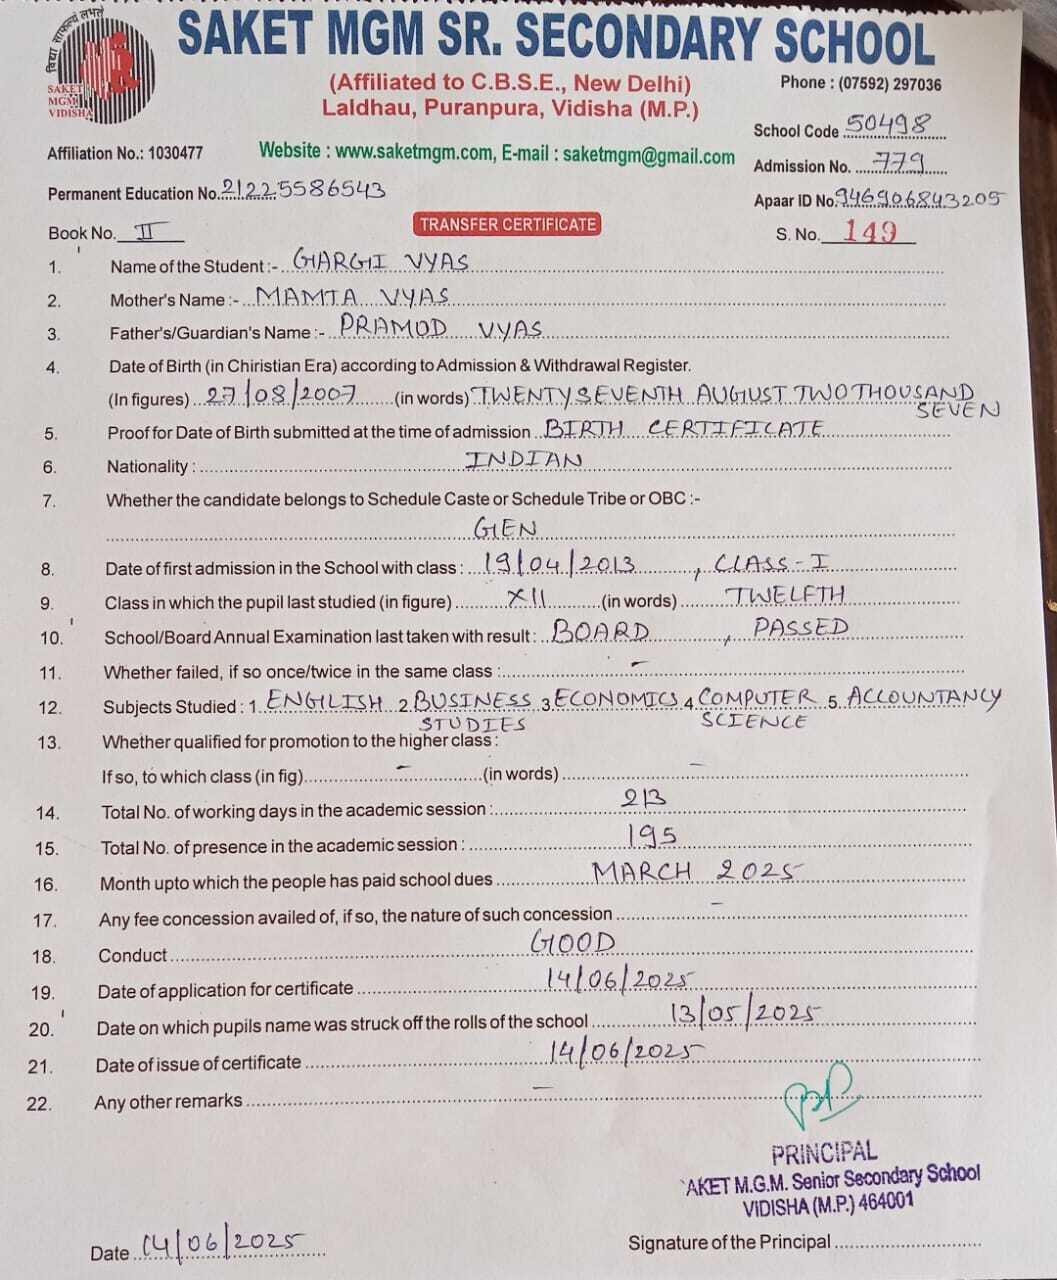 विद्या साफल्यं लभते
SAKET
MGM
VIDISHA
SAKET MGM SR. SECONDARY SCHOOL
(Affiliated to C.B.S.E., New Delhi)
Phone : (07592) 297036
Laldhau, Puranpura, Vidisha (M.P.)
School Code 50498
Affiliation No.: 1030477
Website : www.saketmgm.com, E-mail : saketmgm@gmail.com
Admission No. 779
Permanent Education No. 21225586543
Apaar ID No. 946906843205
Book No. II
TRANSFER CERTIFICATE
S. No. 149
1. Name of the Student :- GARGI VYAS
2. Mother's Name :- MAMTA VYAS
3. Father's/Guardian's Name :- PRAMOD VYAS
4. Date of Birth (in Chiristian Era) according to Admission & Withdrawal Register.
(In figures) 27/08/2007 (in words) TWENTY SEVENTH AUGUST TWO THOUSAND
SEVEN
5. Proof for Date of Birth submitted at the time of admission BIRTH CERTIFICATE
6. Nationality : INDIAN
7. Whether the candidate belongs to Schedule Caste or Schedule Tribe or OBC :-
GEN
8. Date of first admission in the School with class : 19/04/2013, CLASS-I
9. Class in which the pupil last studied (in figure) XII (in words) TWELFTH
10. School/Board Annual Examination last taken with result : BOARD, PASSED
11. Whether failed, if so once/twice in the same class : -
12. Subjects Studied : 1. ENGLISH 2. BUSINESS 3. ECONOMICS 4. COMPUTER 5. ACCOUNTANCY
STUDIES SCIENCE
13. Whether qualified for promotion to the higher class :
If so, to which class (in fig) - (in words) -
14. Total No. of working days in the academic session : 213
15. Total No. of presence in the academic session : 195
16. Month upto which the people has paid school dues MARCH 2025
17. Any fee concession availed of, if so, the nature of such concession -
18. Conduct GOOD
19. Date of application for certificate 14/06/2025
20. Date on which pupils name was struck off the rolls of the school 13/05/2025
21. Date of issue of certificate 14/06/2025
22. Any other remarks -
PRINCIPAL
AKET M.G.M. Senior Secondary School
VIDISHA (M.P.) 464001
Date 14/06/2025
Signature of the Principal